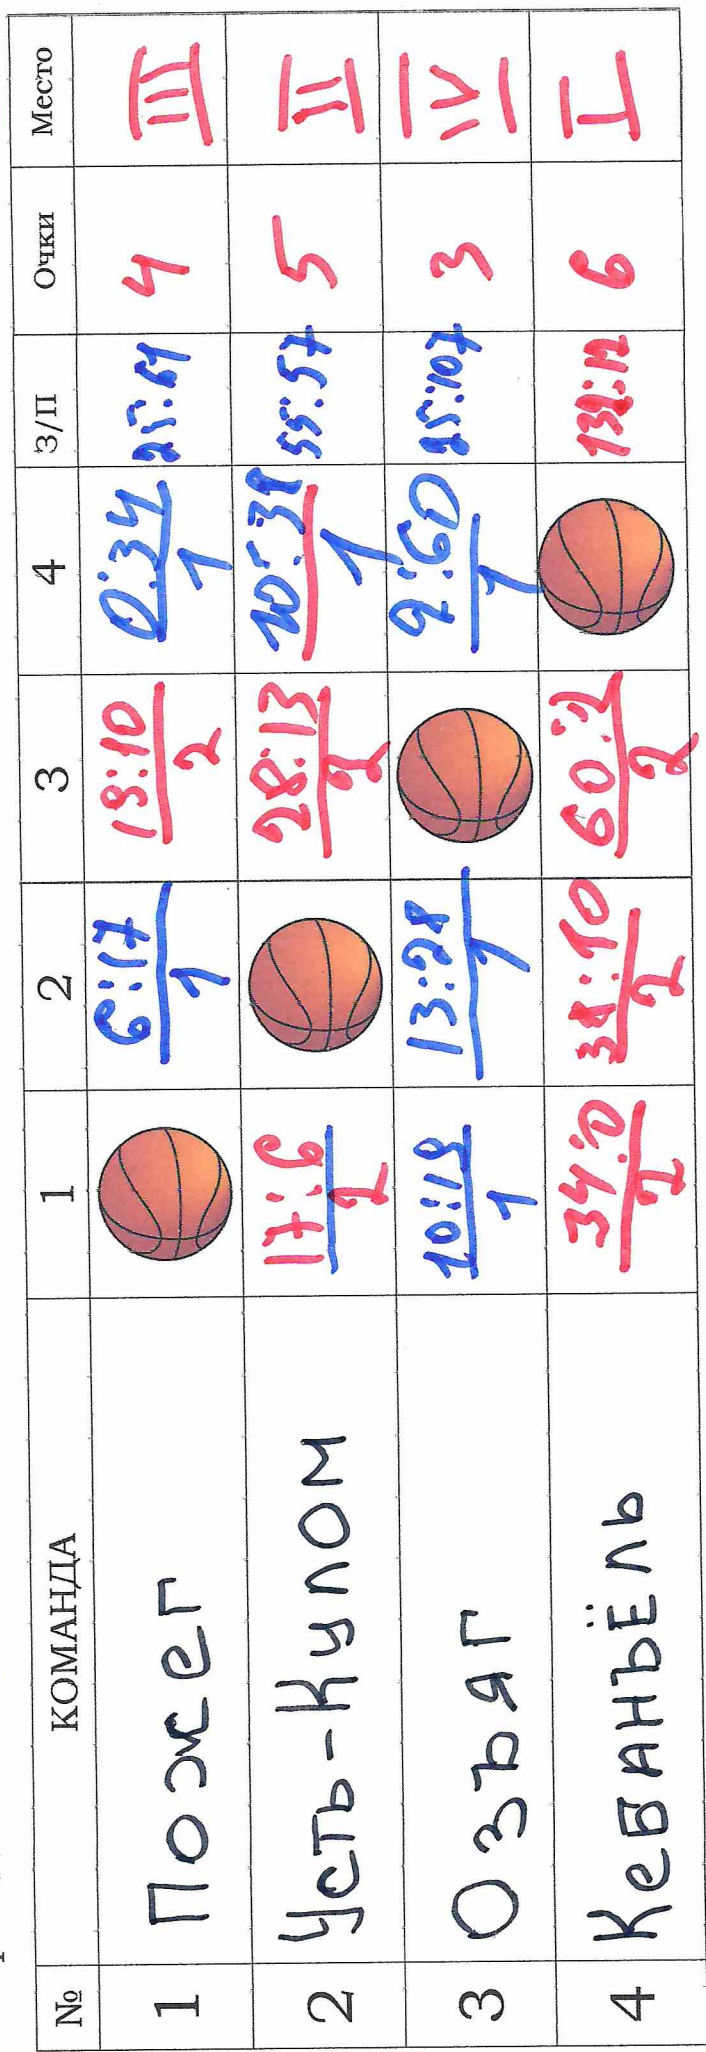 № КОМАНДА 1 2 3 4 З/П Очки Место
1 Пожег 6:17 19:10 0:34 25:61 4 III
1 2 1
2 Усть-Кулом 17:6 28:13 10:38 55:57 5 II
2 2 1
3 Озъяг 10:19 13:28 2:60 25:107 3 IV
1 1 1
4 КеБАНЪЁЛЬ 34:0 38:10 60:2 132:12 6 I
2 2 2